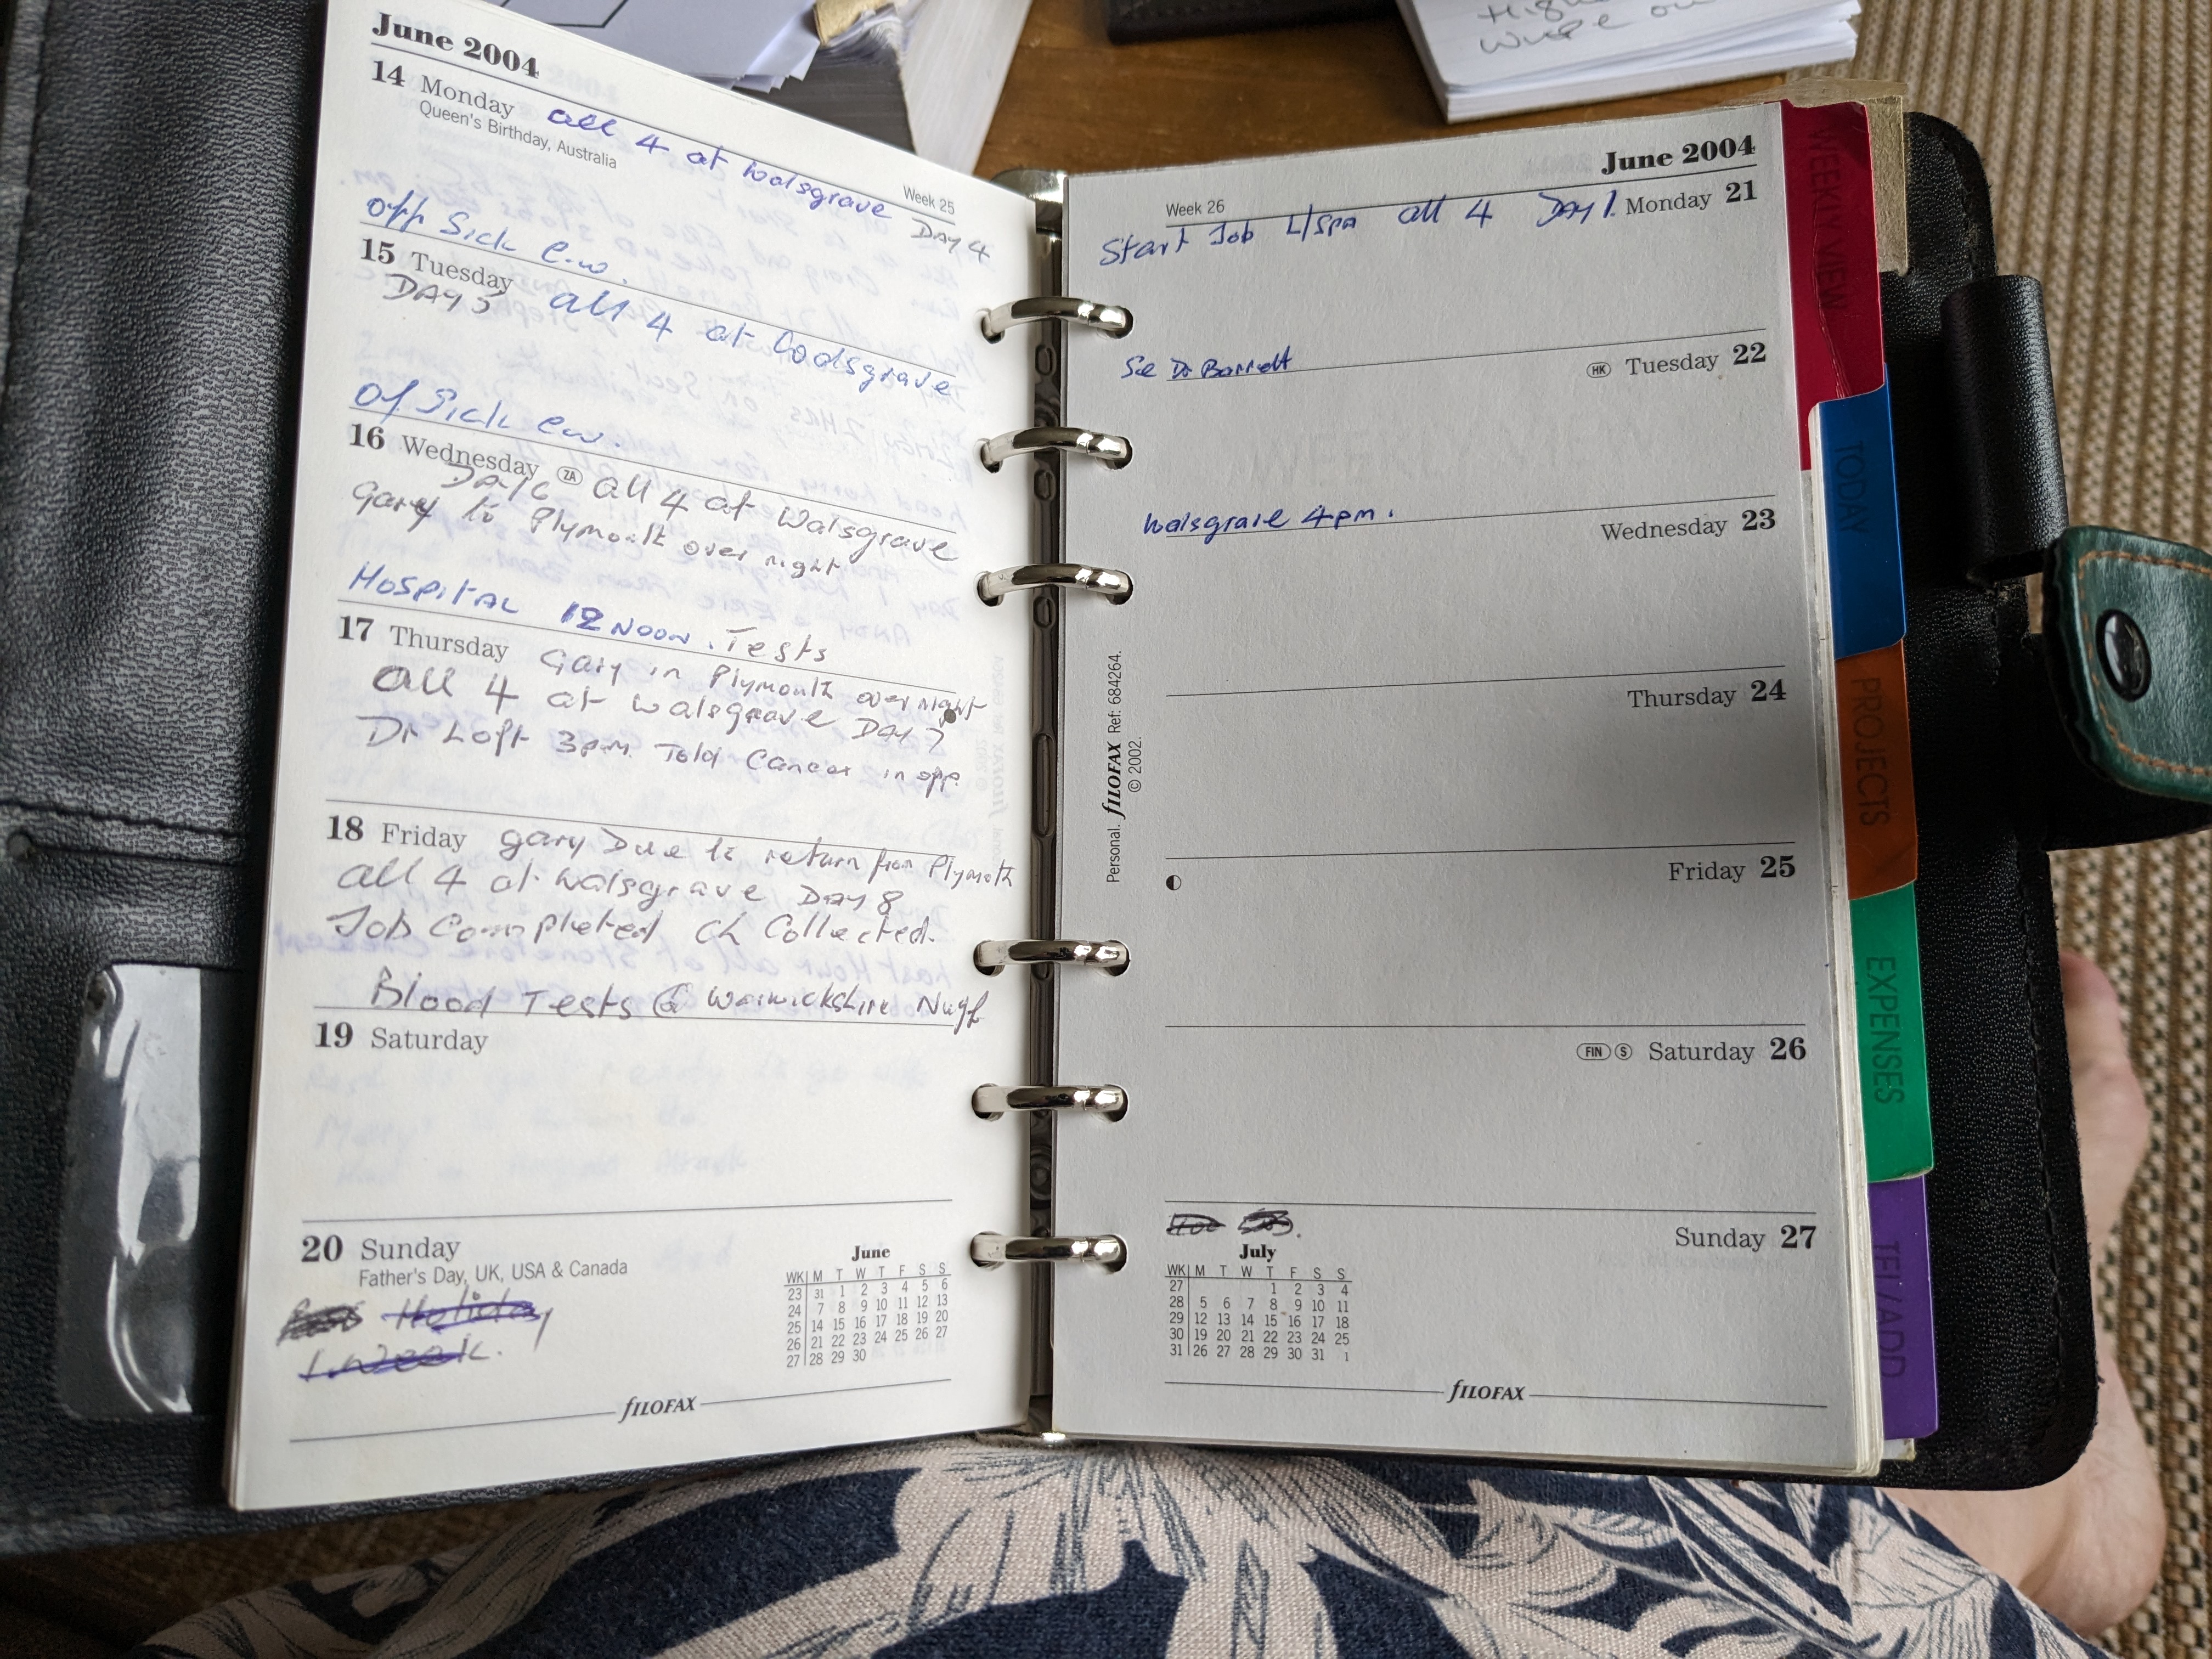 June 2004
14 Monday all 4 at Walsgrave
Queen's Birthday, Australia
Week 25
DAY 4
off Sick e.w.
15 Tuesday all 4 at Walsgrave
DAY 5
Of Sick ew.
16 Wednesday ZA all 4 at Walsgrave
DAY 6
Gary to Plymouth over night
HOSPITAL 12 NOON. Tests
17 Thursday Gary in Plymouth over night
all 4 at Walsgrave DAY 7
Dr Loft 3pm Told Cancer in
18 Friday gary Due to return from Plymoth
all 4 at Walsgrave DAY 8
Job Completed ch Collected.
Blood Tests @ Warwickshire Nuff
19 Saturday
20 Sunday
Father's Day, UK, USA & Canada
Holiday
1 week.
June
WK M T W T F S S
23 31 1 2 3 4 5 6
24 7 8 9 10 11 12 13
25 14 15 16 17 18 19 20
26 21 22 23 24 25 26 27
27 28 29 30
fILOFAX
June 2004
Week 26
Monday 21
Start Job L/Spa all 4 DAY 1.
HK Tuesday 22
See Dr Barrett
Wednesday 23
Walsgrave 4pm.
Thursday 24
Friday 25
FIN S Saturday 26
Sunday 27
July
WK M T W T F S S
27 1 2 3 4
28 5 6 7 8 9 10 11
29 12 13 14 15 16 17 18
30 19 20 21 22 23 24 25
31 26 27 28 29 30 31 1
fILOFAX
Personal. fILOFAX Ref: 684264.
© 2002.
WEEKLY VIEW
TODAY
PROJECTS
EXPENSES
TEL/ADD